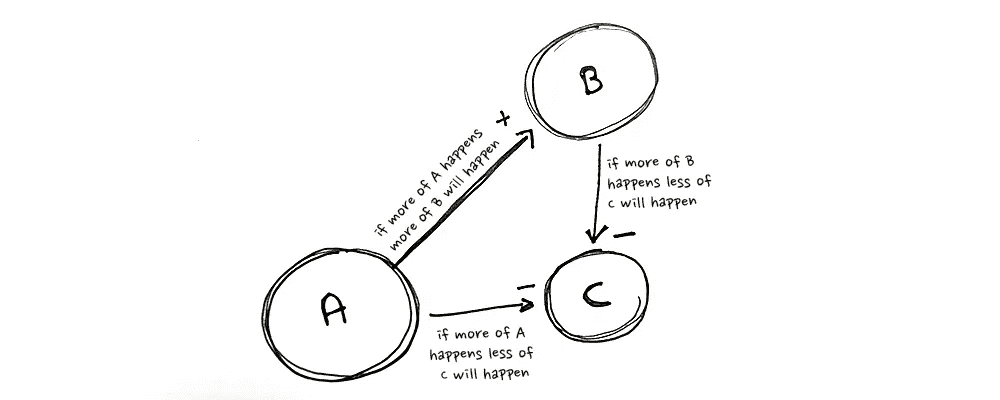 B
+
if more of A happens
more of B will happen
if more of B
happens less of
c will happen
–
A
–
C
if more of A
happens less of
c will happen